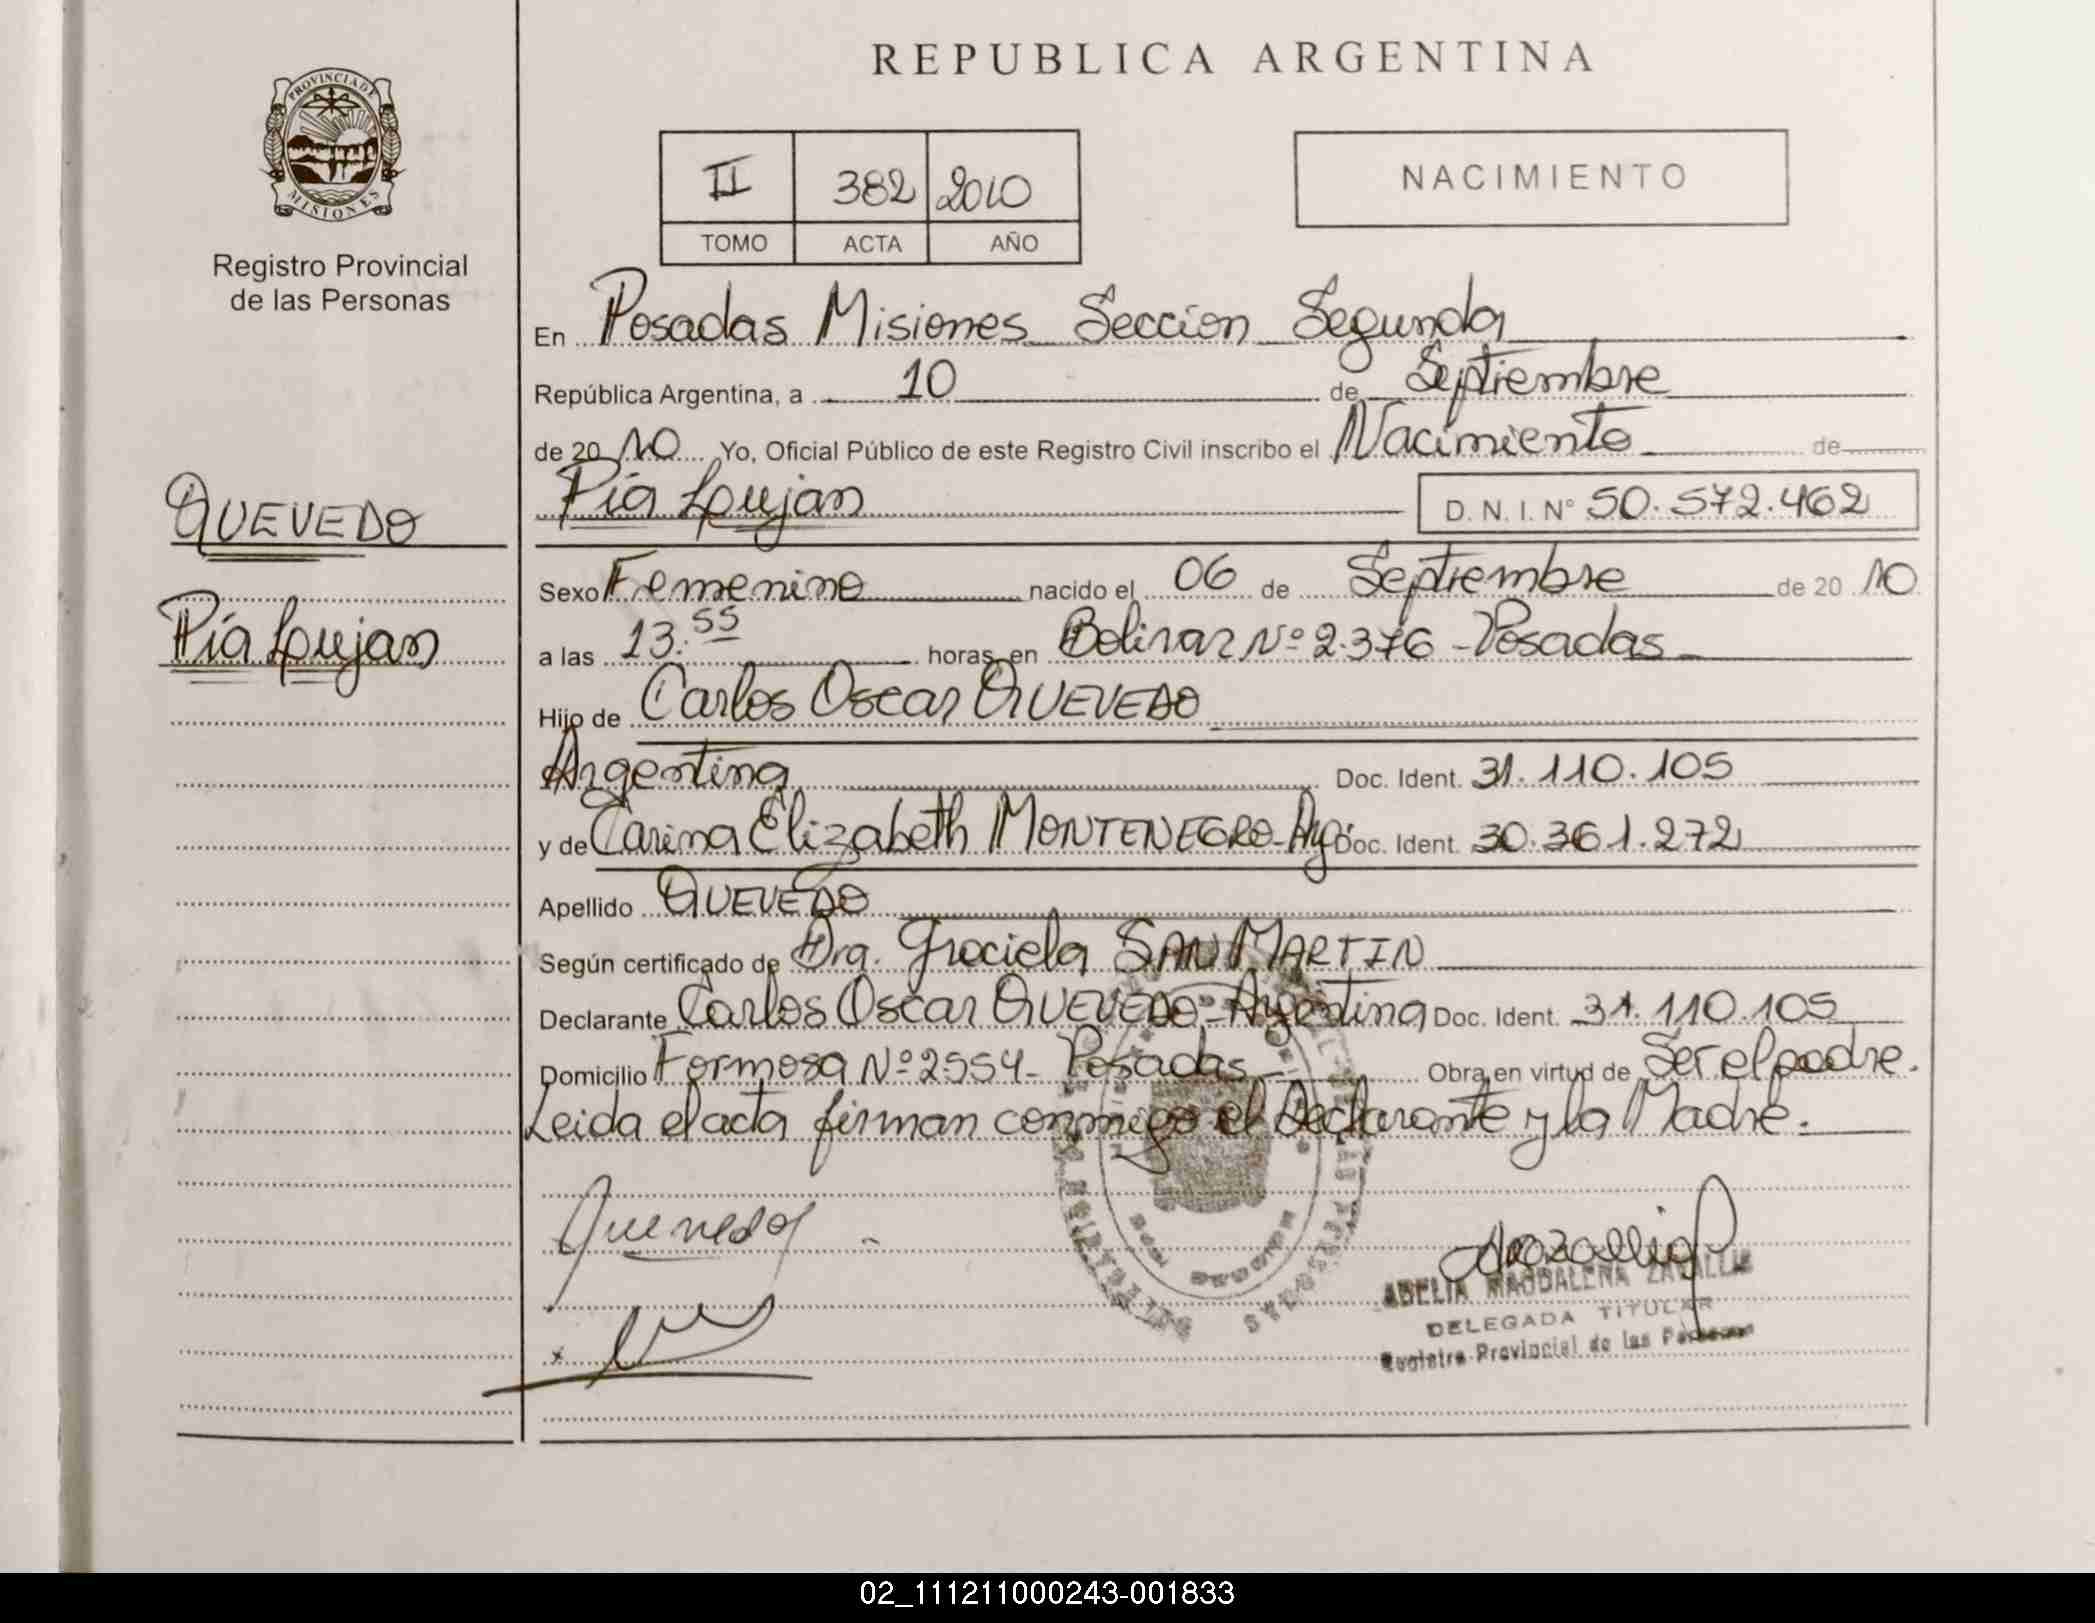 REPUBLICA ARGENTINA
PROVINCIA DE MISIONES
Registro Provincial
de las Personas
II 382 2010
TOMO ACTA AÑO
NACIMIENTO
En Posadas Misiones Seccion Segunda
República Argentina, a 10 de Septiembre
de 2010 Yo, Oficial Público de este Registro Civil inscribo el Nacimiento de
QUEVEDO
Pía Lujan
Pía Lujan D. N. I. N° 50.572.462
Sexo Femenino nacido el 06 de Septiembre de 2010
a las 13:55 horas, en Bolivar Nº 2.376 - Posadas
Hijo de Carlos Oscar QUEVEDO
Argentina Doc. Ident. 31.110.105
y de Carina Elizabeth MONTENEGRO - Arg. Doc. Ident. 30.361.272
Apellido QUEVEDO
Según certificado de Dra. Graciela SAN MARTIN
Declarante Carlos Oscar QUEVEDO - Argentina Doc. Ident. 31.110.105
Domicilio Formosa Nº 2554 - Posadas Obra en virtud de Ser el padre.
Leida el acta firman conmigo el Declarante y la Madre.
Quevedo
ABELIA MAGDALENA ZAVALLIA
DELEGADA TITULAR
Registro Provincial de las Personas
02_111211000243-001833